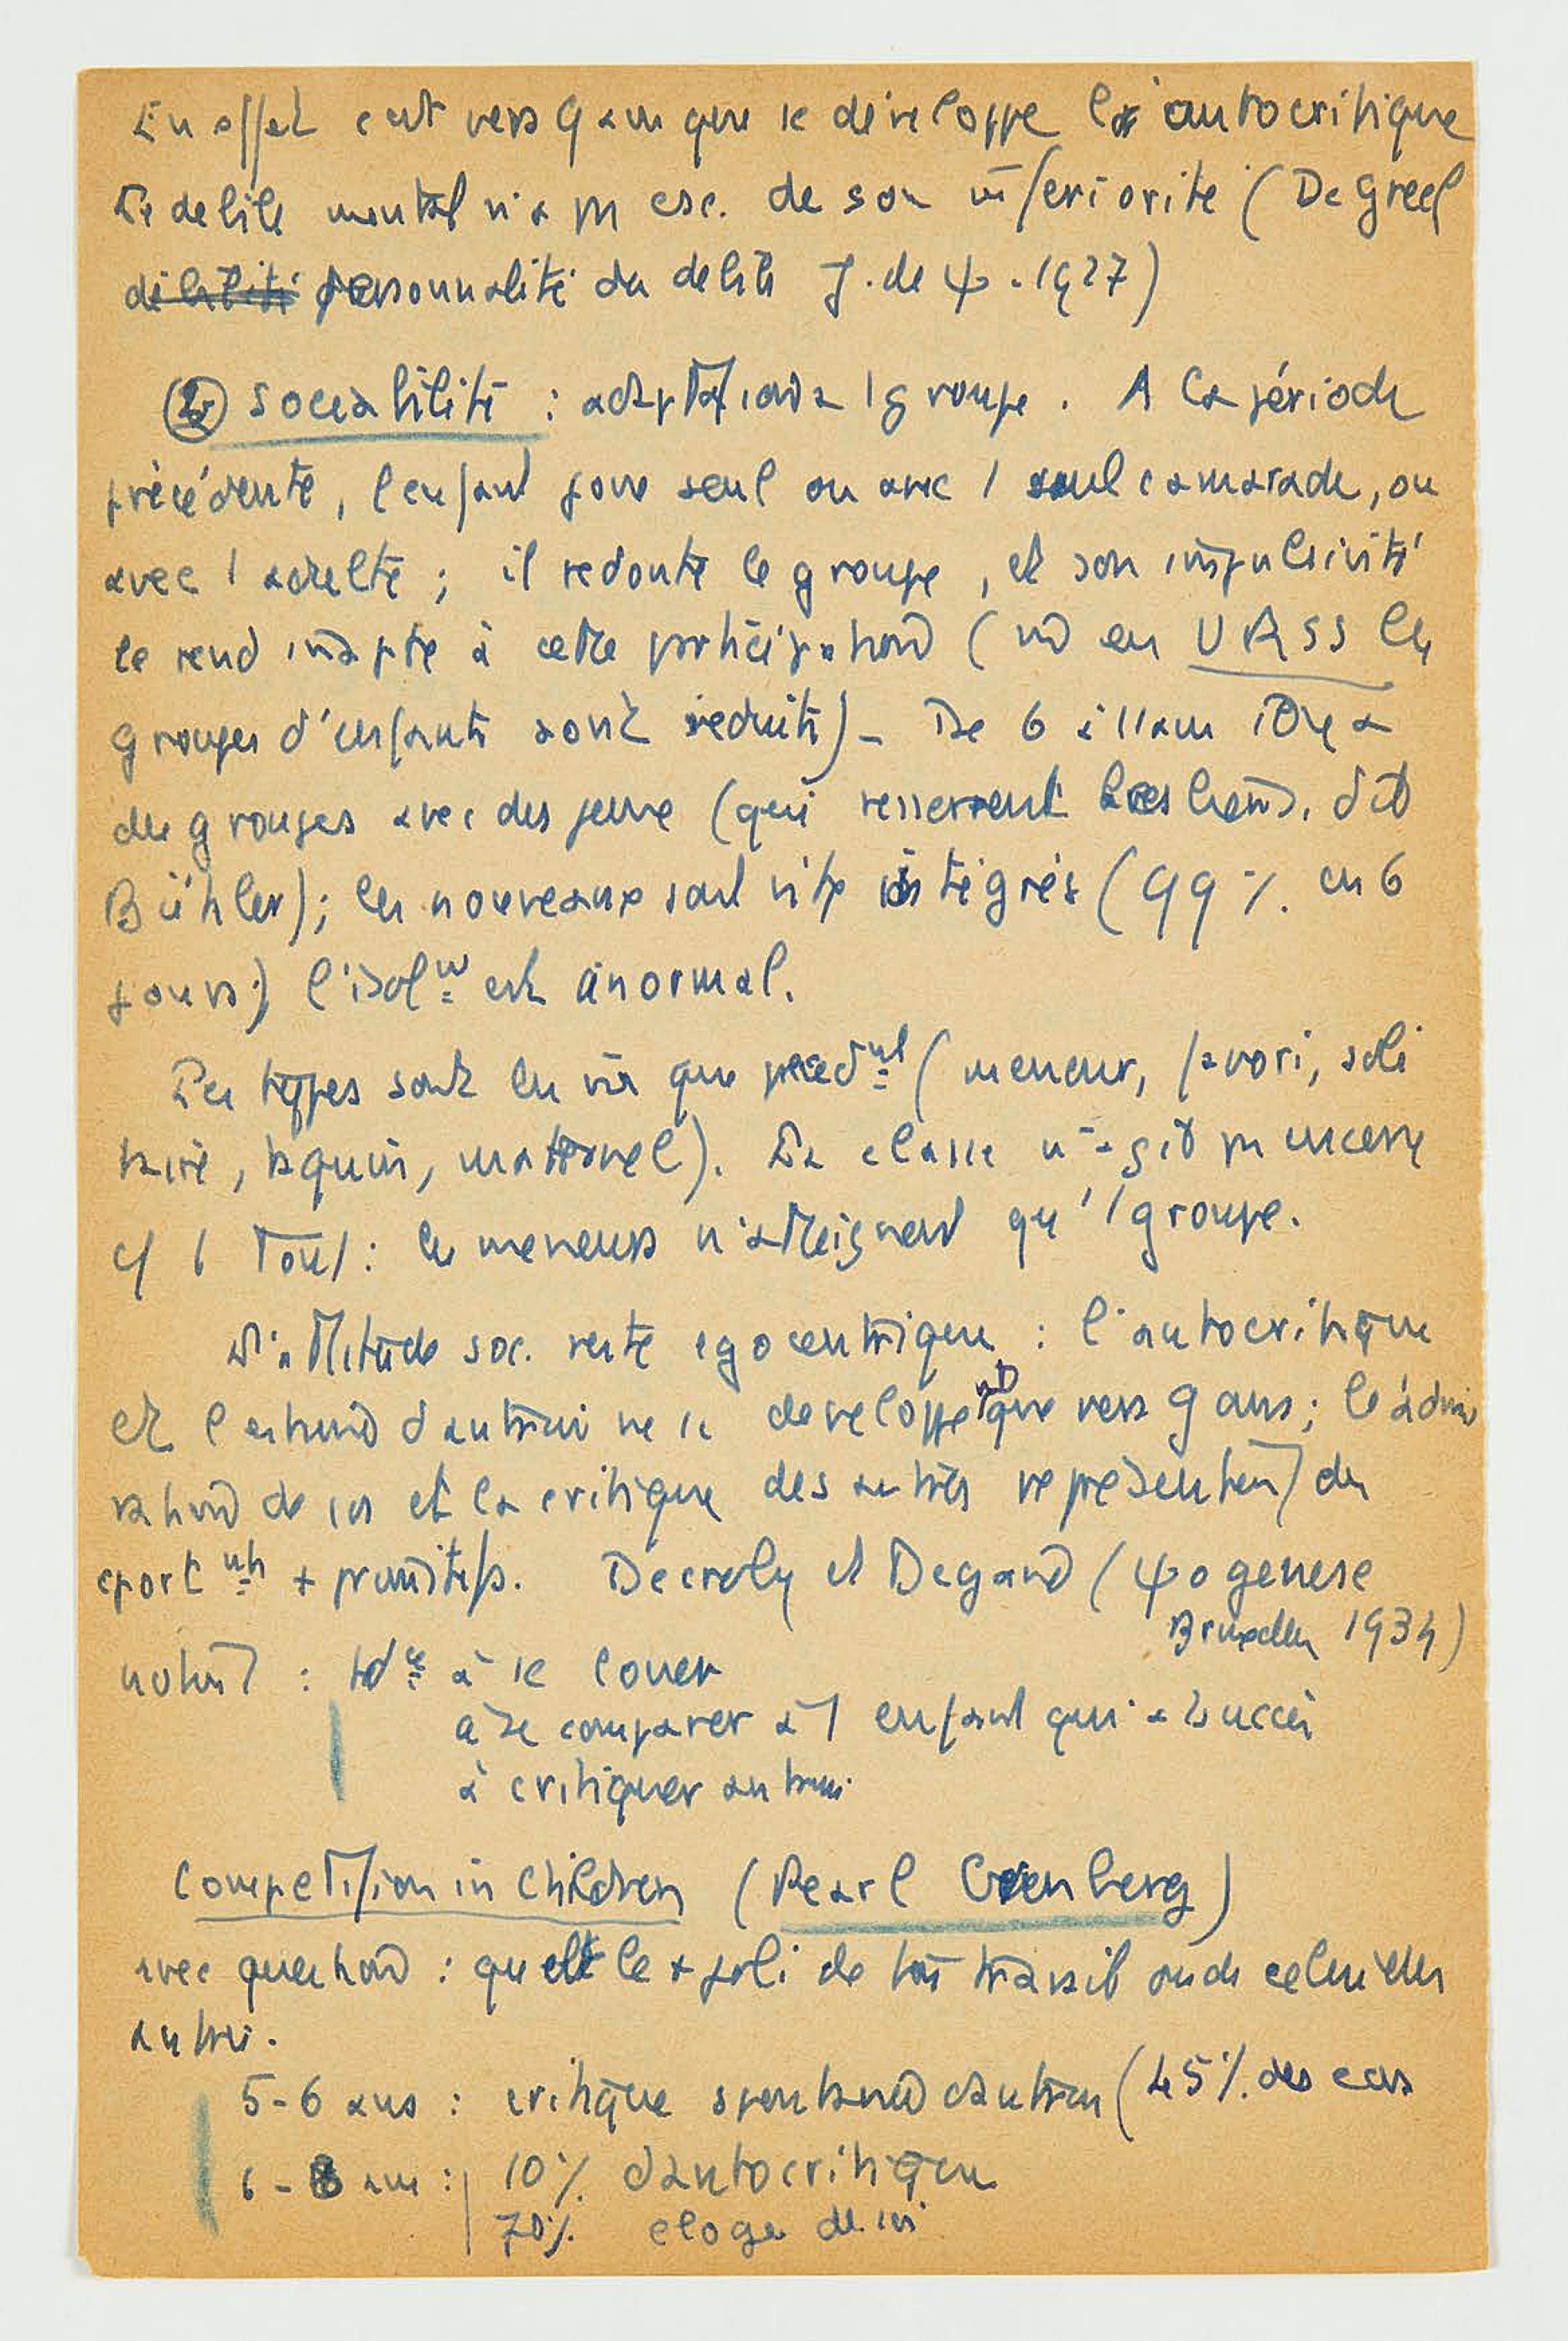 En effet c'est vers 9 ans que se développe l'autocritique
Le débile mental n'a pas csc. de son infériorité (De Greef
débilité personnalité du débile J. de ψ. 1927)
② Sociabilité : adaptation à 1 groupe. A la période
précédente, l'enfant joue seul ou avec 1 seul camarade, ou
avec 1 adulte ; il redoute le groupe, et son impulsivité
le rend inapte à cette participation ( en URSS les
groupes d'enfants sont réduits) - De 6 à 11 ans il y a
des groupes avec des jeux (qui resserrent les liens, dit
Bühler) ; les nouveaux sont vite intégrés (99 % en 6
jours) l'isolmt est anormal.
Les types sont les m̄ que précédmt (meneur, favori, soli
taire, taquin, maternel). La classe n'agit pas encore
c/ 1 tout : les meneurs n'atteignent qu'1 groupe.
L'attitude soc. reste egocentrique : l'autocritique
et l'estime d'autrui ne se développent que vers 9 ans ; l'admi
ration de soi et la critique des autres représentent des
cportmts + primitifs. Decroly et Degand (ψogenese
Bruxelles 1934)
notent : tdce à se louer
à se comparer à 1 enfant qui a succès
à critiquer autrui
Competition in children (Pearl Greenberg)
avec question : quel est le + joli de ton travail ou de celui des
autres.
5-6 ans : critique spontanée d'autrui (45 % des cas
6-8 ans : 10 % d'autocritique
70 % eloge de soi